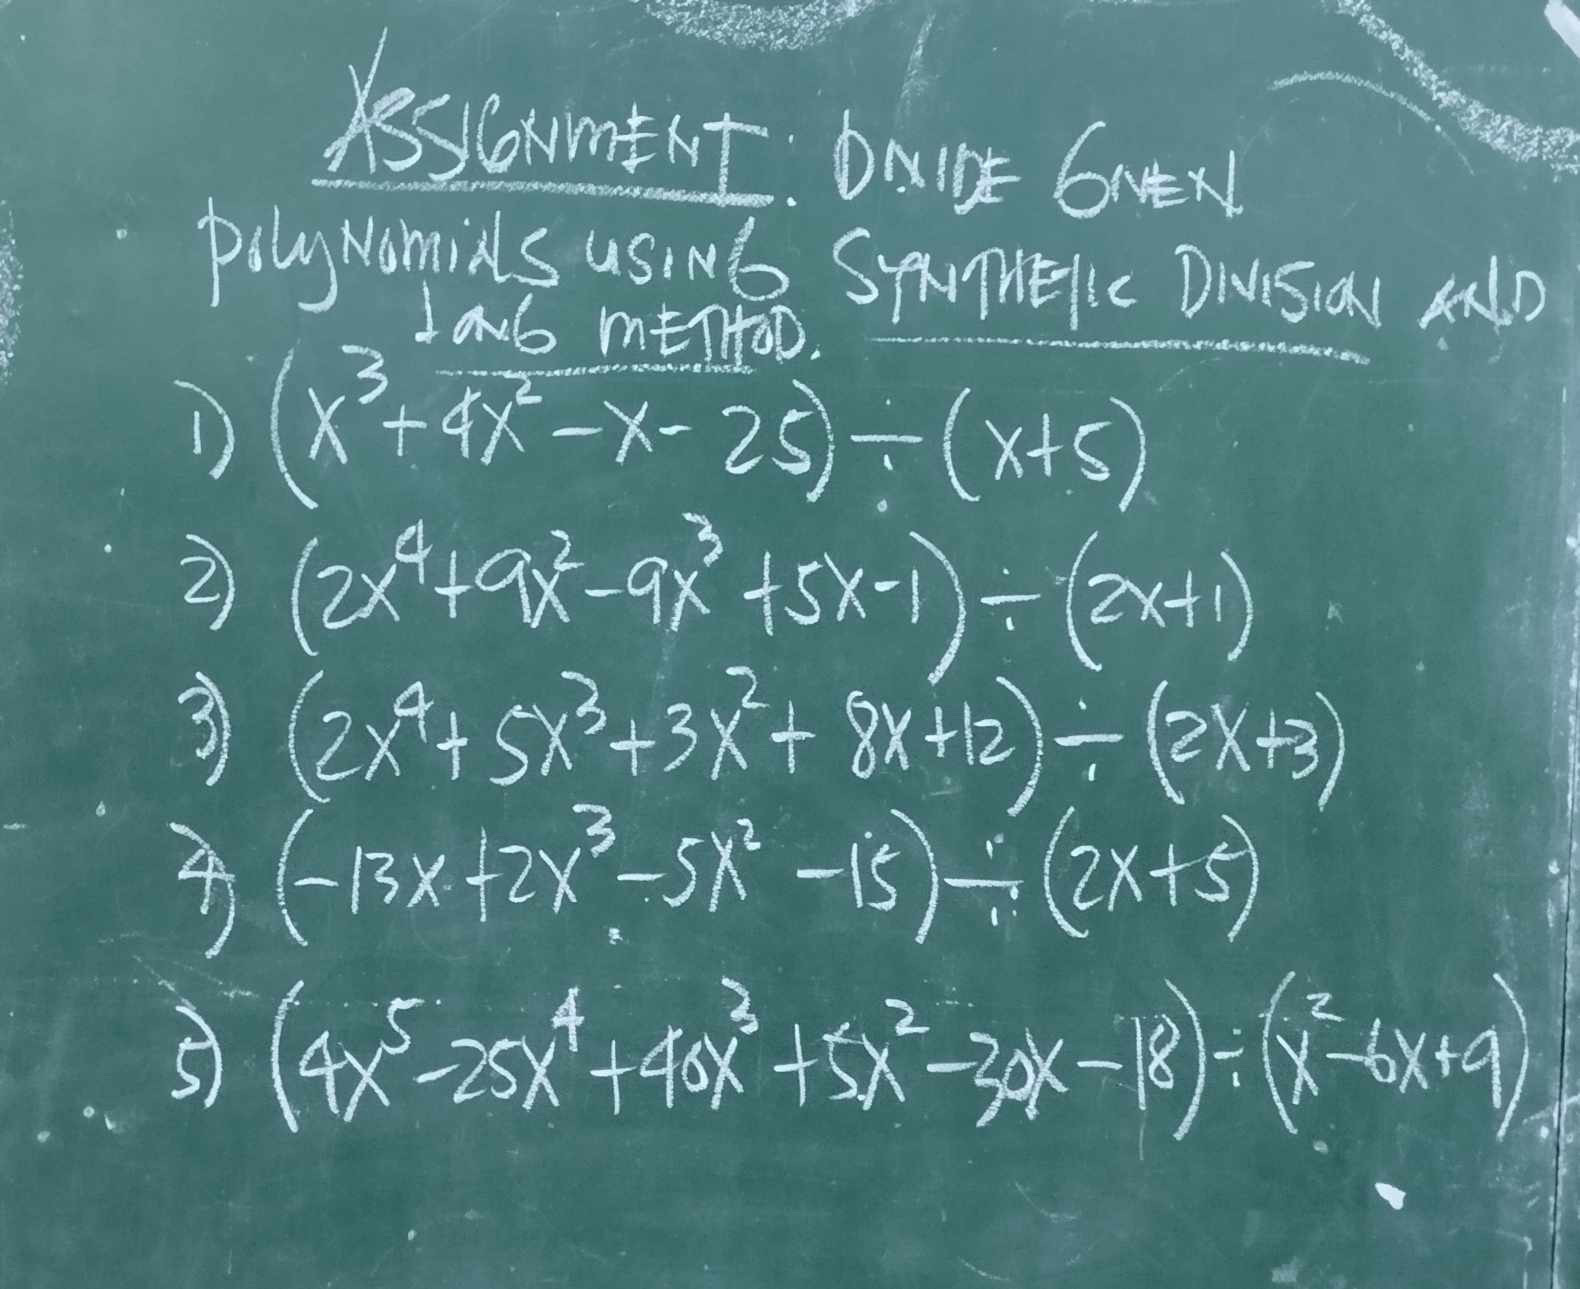 ASSIGNMENT: DIVIDE GIVEN
POLYNOMIALS USING SYNTHETIC DIVISION AND
LONG METHOD.
1) (x³ + 4x² - x - 25) ÷ (x+5)
2) (2x⁴ + 9x² - 9x³ + 5x - 1) ÷ (2x+1)
3) (2x⁴ + 5x³ + 3x² + 8x + 12) ÷ (2x+3)
4) (-13x + 2x³ - 5x² - 15) ÷ (2x+5)
5) (4x⁵ - 25x⁴ + 40x³ + 5x² - 30x - 18) ÷ (x² - 6x + 9)